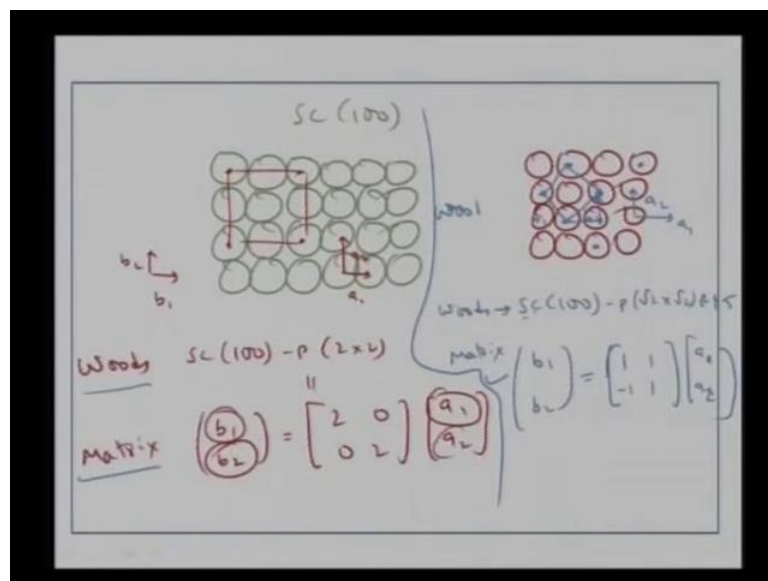 SC (100)
b₂
b₁
a₁
Woods SC (100) - P (2x2)
||
Matrix (b₁ b₂) = [2 0
0 2] (a₁ a₂)
Wood
a₂
a₁
Woods → SC(100) - P(√2 x √2) R45
Matrix (b₁ b₂) = [1 1
-1 1] [a₁ a₂]